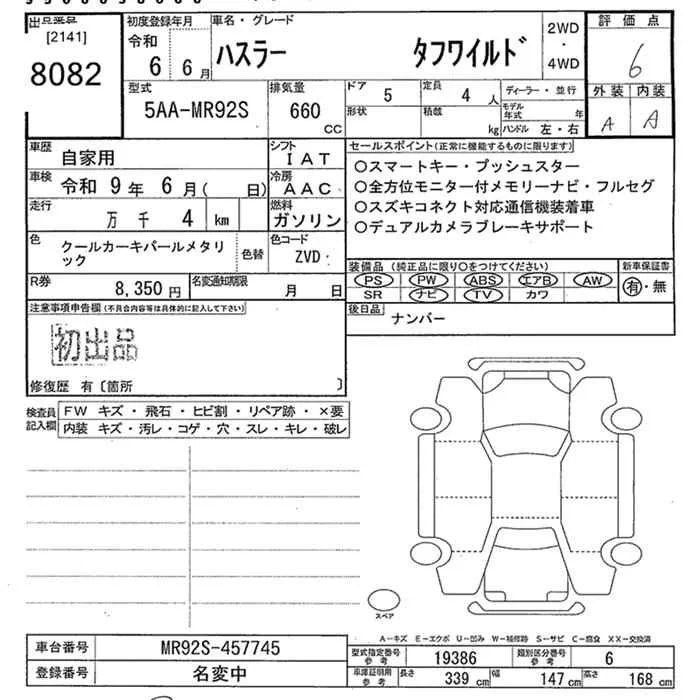 [2141]
8082
初度登録年月
令和
6 6月
車名・グレード
ハスラー タフワイルド
2WD
・
4WD
評価点
6
外装 内装
A A
型式
5AA-MR92S
排気量
660
CC
ドア
5
定員
4 人
形状
積載
kg
ディーラー・並行
モデル年式 年
ハンドル 左・右
車歴
自家用
シフト
IAT
車検
令和 9年 6月( 日)
冷房
AAC
走行
万 千 4 km
燃料
ガソリン
色
クールカーキパールメタリック
色替
色コード
ZVD
R券
8,350 円
名変通知期限
月 日
セールスポイント(正常に機能するものに限ります)
○スマートキー・プッシュスター
○全方位モニター付メモリーナビ・フルセグ
○スズキコネクト対応通信機装着車
○デュアルカメラブレーキサポート
装備品 (純正品に限り○をつけてください)
PS PW ABS エアB AW
SR ナビ TV カワ
新車保証書
有・無
後日品
ナンバー
注意事項申告欄(不具合内容等は具体的に記入して下さい)
初出品
修復歴 有〔箇所 〕
検査員記入欄
FW キズ・飛石・ヒビ割・リペア跡・×要
内装 キズ・汚レ・コゲ・穴・スレ・キレ・破レ
スペア
A-キズ E-エクボ U-凹み W-補修跡 S-サビ C-腐食 XX-交換済
車台番号
MR92S-457745
登録番号
名変中
型式指定番号 参考
19386
類別区分番号 参考
6
車庫証明用 参考
長さ 339 cm
幅 147 cm
高さ 168 cm